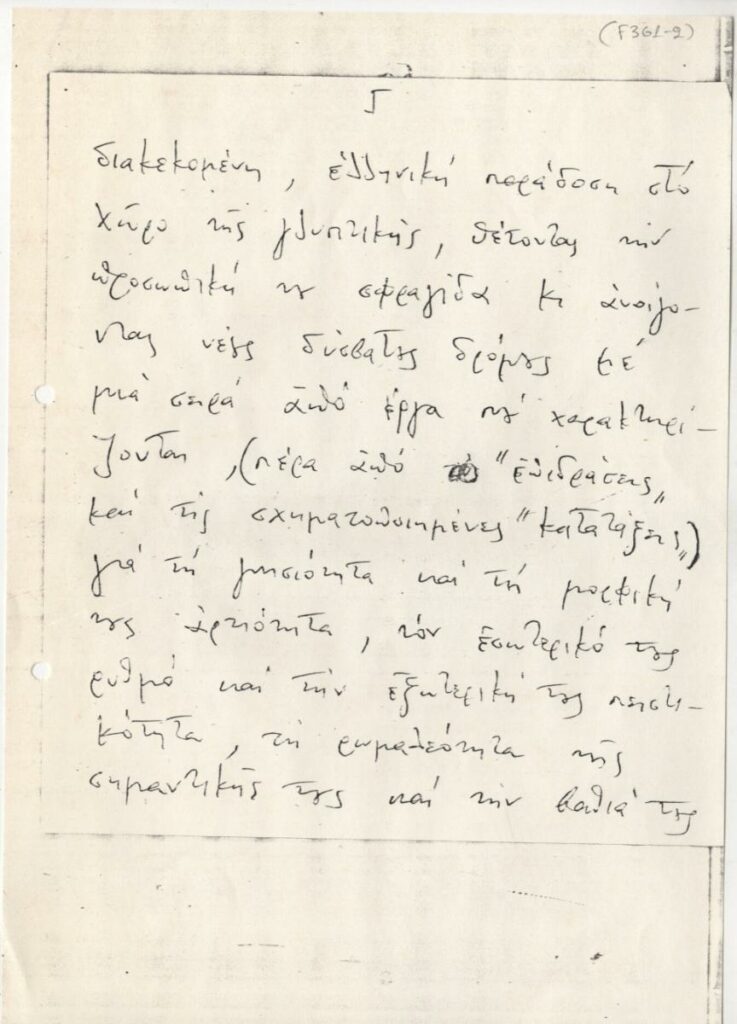 (F361-2)
5
διακεκομένη, ἑλληνική παράδοση στό
χῶρο τῆς γλυπτικῆς, θέτοντας τήν
προσωπική του σφραγίδα κι ἀνοίγο-
ντας νέους δύσβατους δρόμους μέ
μιά σειρά ἀπό ἔργα πού χαρακτηρί-
ζονται, (πέρα ἀπό "ἐπιδράσεις"
καί τίς σχηματοποιημένες "κατατάξεις")
γιά τή γνησιότητα καί τή μορφική
τους ἀρτιότητα, τόν ἐσωτερικό τους
ρυθμό καί τήν ἐξωτερική τους πειστι-
κότητα, τή ρωμαλεότητα τῆς
σημαντικῆς τους καί τήν βαθιά τους